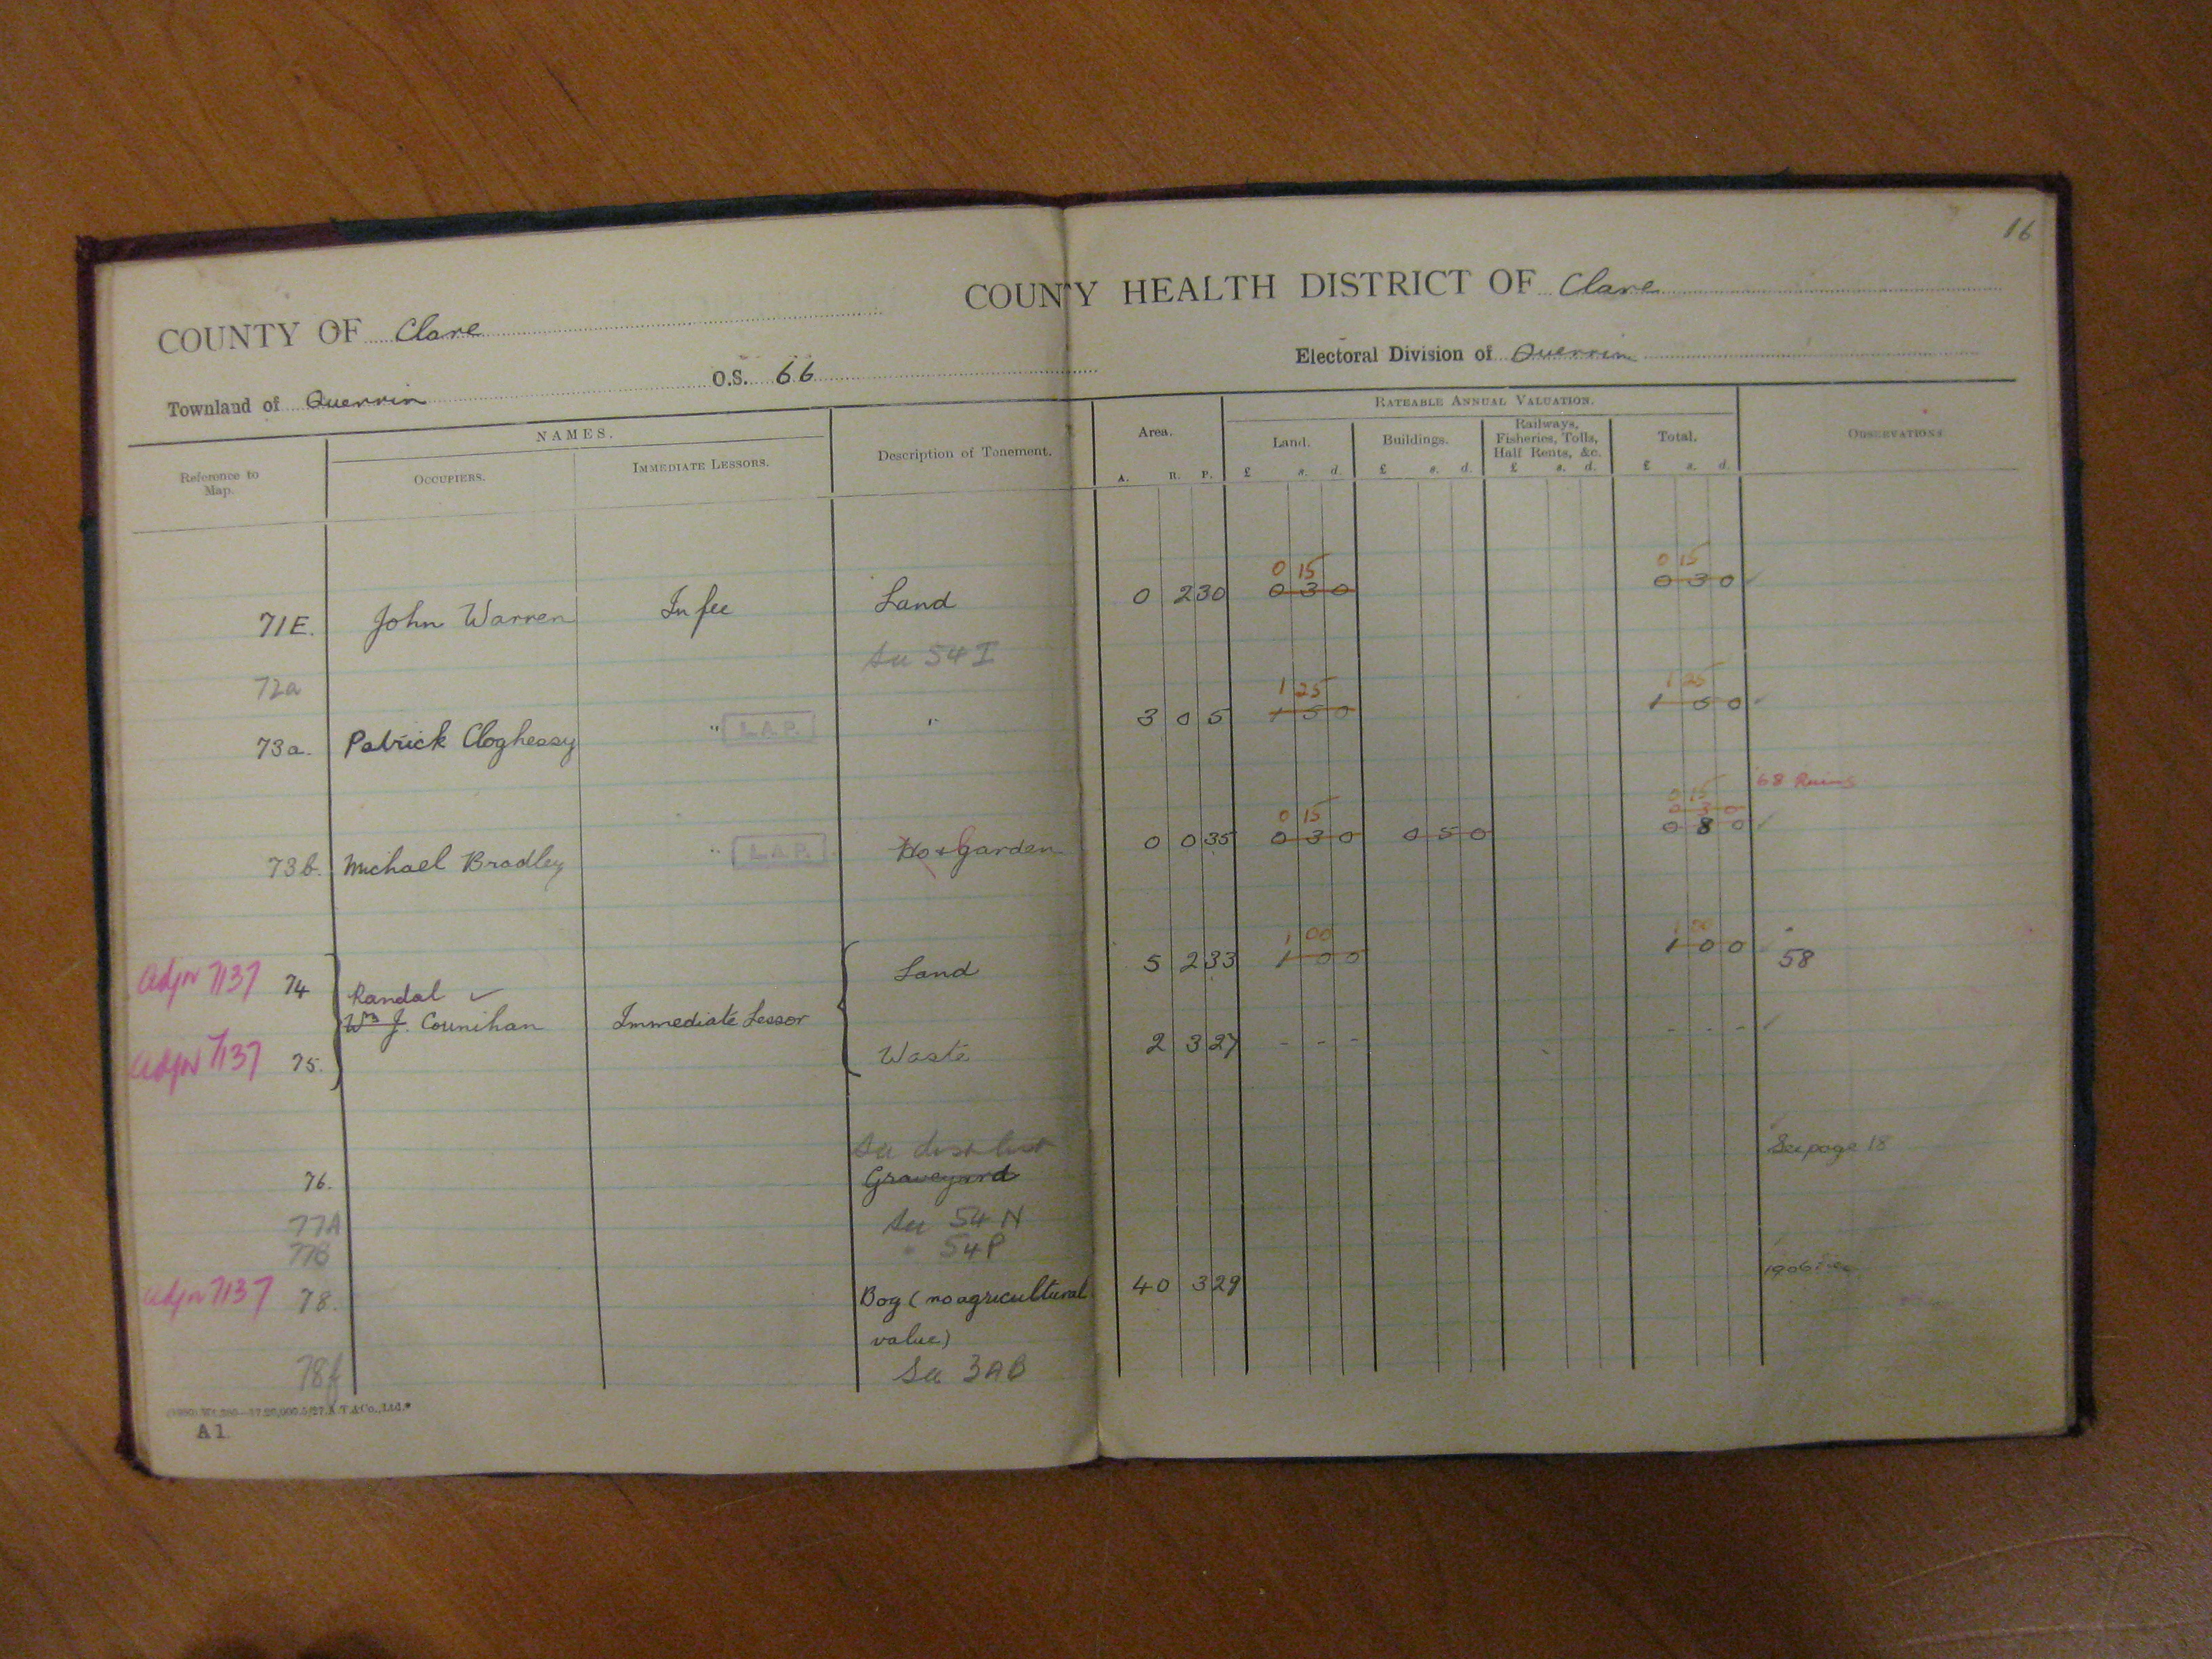 16
COUNTY HEALTH DISTRICT OF Clare
COUNTY OF Clare
Electoral Division of Querrin
Townland of Querrin O.S. 66
NAMES.
RATEABLE ANNUAL VALUATION.
Reference to Map.
OCCUPIERS.
IMMEDIATE LESSORS.
Description of Tenement.
Area.
Land.
Buildings.
Railways, Fisheries, Tolls, Half Rents, &c.
Total.
OBSERVATIONS
A. R. P. £ s. d. £ s. d. £ s. d. £ s. d.
0 15 0 15
71E. John Warren In fee Land 0 2 30 0 3 0 0 3 0
72a See 54 I
1 25 1 25
73a. Patrick Cloghessy " L.A.P. " 3 0 5 1 5 0 1 5 0
68 Ruins
0 15 0 15
0 3 0
73b. Michael Bradley " L.A.P. Ho & Garden 0 0 35 0 3 0 0 5 0 0 8 0
1 00 1 00
adjn 7137 74 Land 5 2 33 1 0 0 1 0 0 58
Randal ✓
Wm J. Counihan Immediate Lessor
adjn 7137 75. Waste 2 3 27 - - - - - -
See dist list
76. Graveyard See page 18
77A See 54 N
77B " 54P
adjn 7137 78. Bog (no agricultural value) 40 3 29
78f See 3AB
A 1.